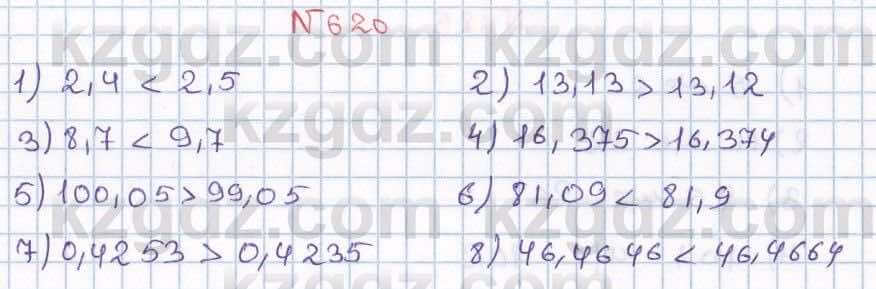 №620
1) 2,4 < 2,5 2) 13,13 > 13,12
3) 8,7 < 9,7 4) 16,375 > 16,374
5) 100,05 > 99,05 6) 81,09 < 81,9
7) 0,4253 > 0,4235 8) 46,4646 < 46,4664
kzgdz.com